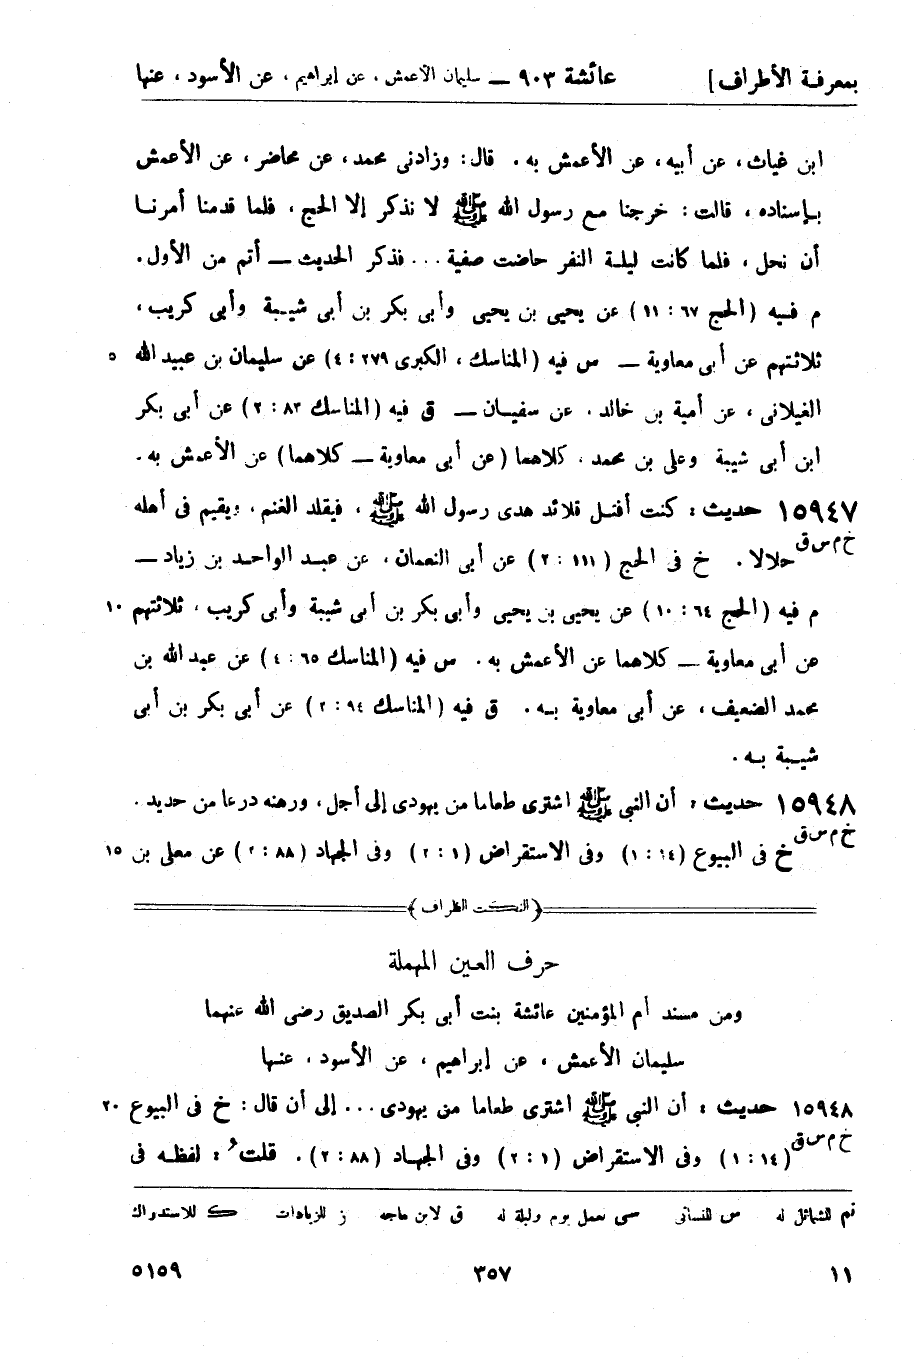 بمعرفة الأطراف] عائشة ٩٠٣ — سليمان الأعمش، عن إبراهيم، عن الأسود، عنها
ابن غياث، عن أبيه، عن الأعمش به. قال: وزادنى محمد، عن محاضر، عن الأعمش
بإسناده، قالت: خرجنا مع رسول الله ﷺ لا نذكر إلا الحج، فلما قدمنا أمرنا
أن نحل، فلما كانت ليلة النفر حاضت صفية ... فذكر الحديث — أتم من الأول.
م فيه (الحج ٦٧ : ١١) عن يحيى بن يحيى وأبى بكر بن أبى شيبة وأبى كريب،
ثلاثتهم عن أبى معاوية — س فيه (المناسك، الكبرى ٢٧٩ : ٤) عن سليمان بن عبيد الله ٥
الغيلانى، عن أمية بن خالد، عن سفيان — ق فيه (المناسك ٨٣ : ٢) عن أبى بكر
ابن أبى شيبة وعلى بن محمد، كلاهما (عن أبى معاوية — كلاهما) عن الأعمش به.
١٥٩٤٧ حديث: كنت أفتل قلائد هدى رسول الله ﷺ، فيقلد الغنم، ويقيم فى أهله
خ م س ق حلالا. خ فى الحج (١١١ : ٢) عن أبى النعمان، عن عبد الواحد بن زياد —
م فيه (الحج ٦٤ : ١٠) عن يحيى بن يحيى وأبى بكر بن أبى شيبة وأبى كريب، ثلاثتهم ١٠
عن أبى معاوية — كلاهما عن الأعمش به. س فيه (المناسك ٦٥ : ٤) عن عبد الله بن
محمد الضعيف، عن أبى معاوية به. ق فيه (المناسك ٩٤ : ٢) عن أبى بكر بن أبى
شيبة به.
١٥٩٤٨ حديث: أن النبي ﷺ اشترى طعاما من يهودى إلى أجل، ورهنه درعا من حديد.
خ م س ق خ فى البيوع (١٤ : ١) وفى الاستقراض (١ : ٢) وفى الجهاد (٨٨ : ٢) عن معلى بن ١٥
﴿النكت الظراف﴾
حرف العين المهملة
ومن مسند أم المؤمنين عائشة بنت أبى بكر الصديق رضى الله عنهما
سليمان الأعمش، عن إبراهيم، عن الأسود، عنها
١٥٩٤٨ حديث: أن النبي ﷺ اشترى طعاما من يهودى ... إلى أن قال: خ فى البيوع ٢٠
خ م س ق (١٤ : ١) وفى الاستقراض (١ : ٢) وفى الجهاد (٨٨ : ٢). قلت: لفظه فى
تم للشمائل له س للنسائى سى لعمل يوم وليلة له ق لابن ماجه ز للزيادات ك للاستدراك
١١ ٣٥٧ ٥١٥٩